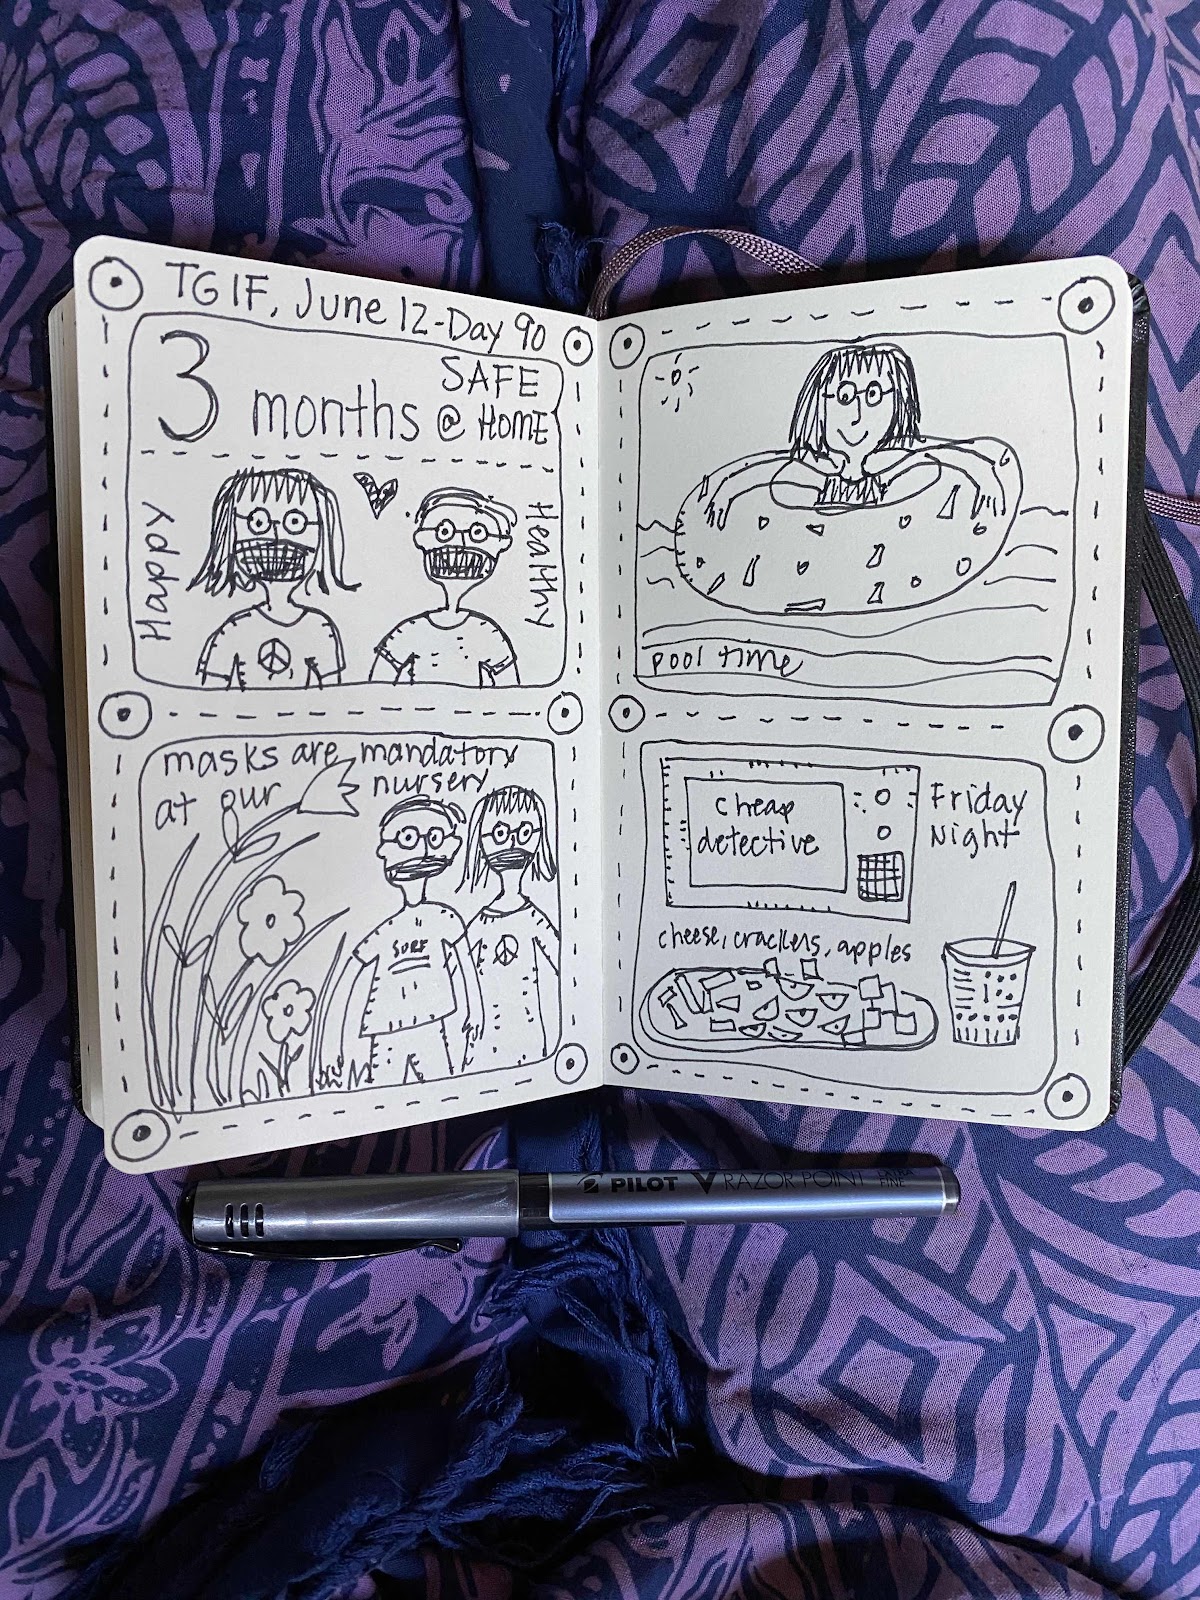 TGIF, June 12-Day 90
3 months SAFE
@ HOME
Happy
Healthy
masks are mandatory
at our nursery
SURF
pool time
cheap
detective
Friday
Night
cheese, crackers, apples
PILOT V RAZOR POINT EXTRA
FINE